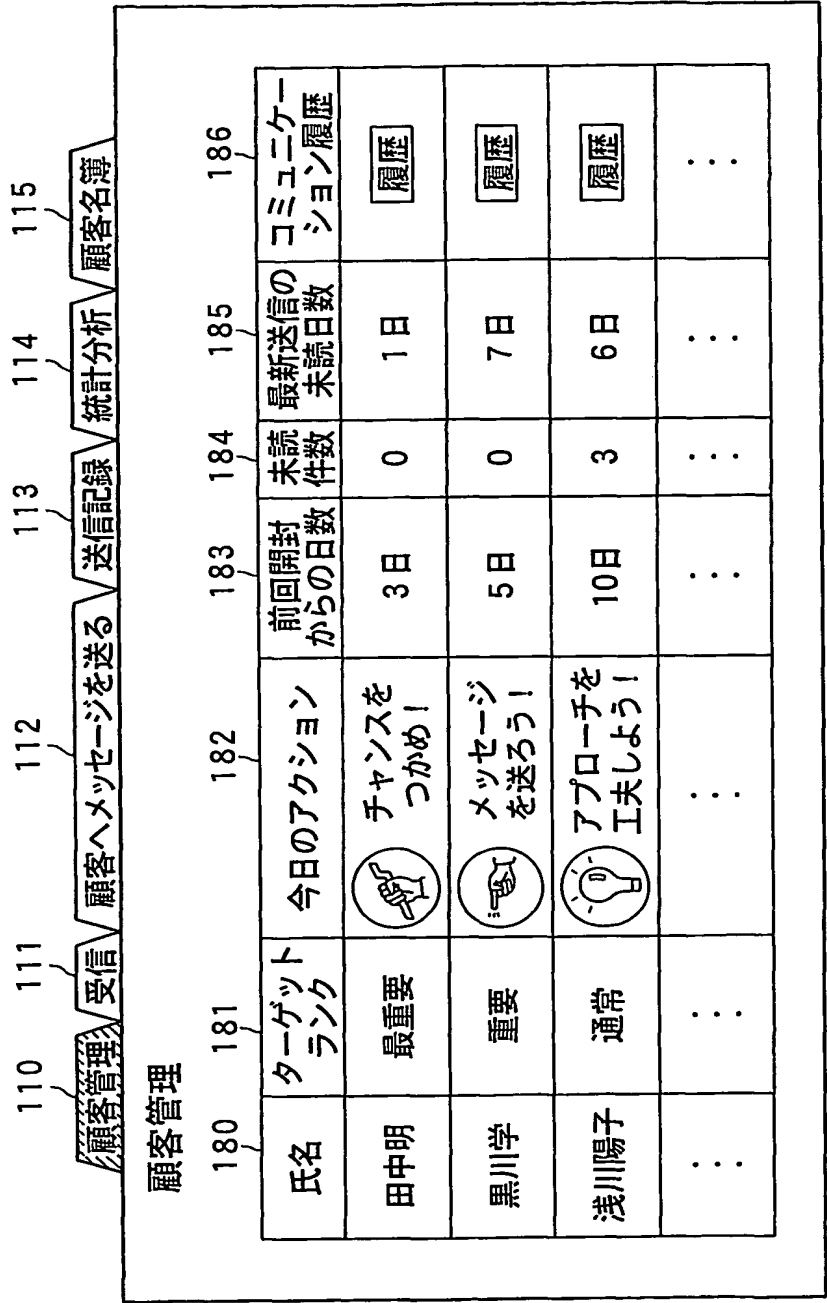 110 111 112 113 114 115
顧客管理 受信 顧客へメッセージを送る 送信記録 統計分析 顧客名簿
顧客管理
180 181 182 183 184 185 186
氏名
ターゲット
ランク
今日のアクション
前回開封
からの日数
未読
件数
最新送信の
未読日数
コミュニケー
ション履歴
田中明
最重要
チャンスを
つかめ!
3日
0
1日
履歴
黒川学
重要
メッセージ
を送ろう!
5日
0
7日
履歴
浅川陽子
通常
アプローチを
工夫しよう!
10日
3
6日
履歴
... ... ... ... ... ... ...